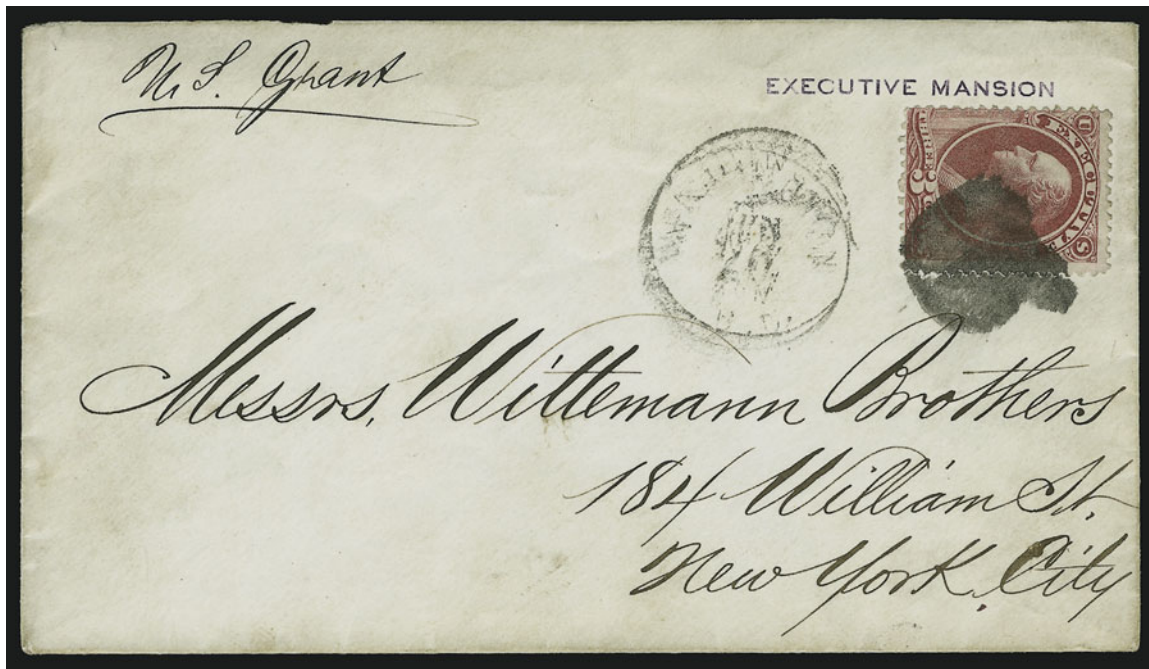 U. S. Grant
EXECUTIVE MANSION
WASHINGTON
D.C.
EXECUTIVE
U S
3
Messrs. Wittemann Brothers
184 William St.
New York, City